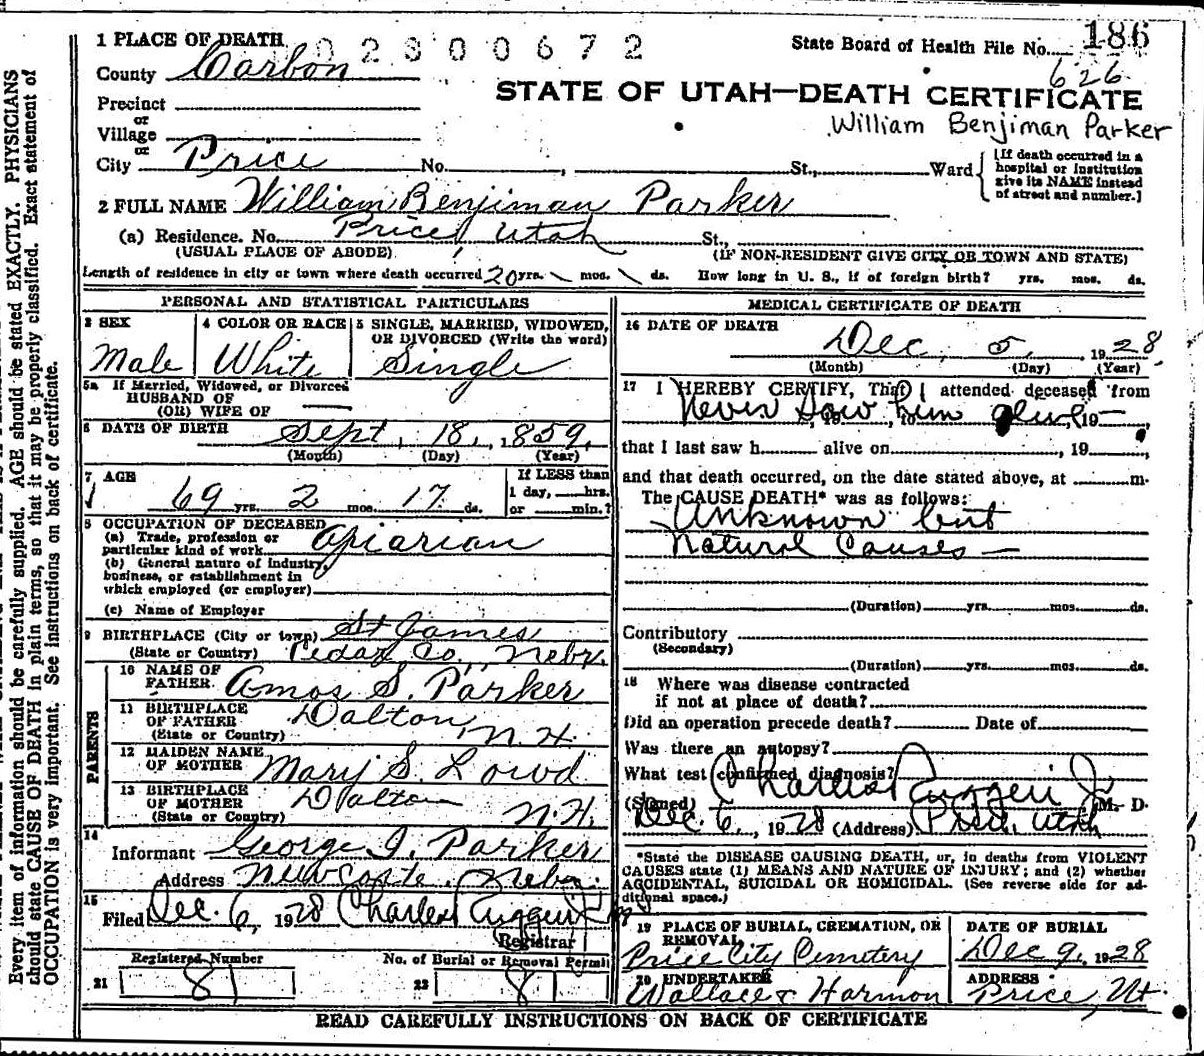 1 PLACE OF DEATH 02800672
State Board of Health File No. 186
County Carbon
626
STATE OF UTAH—DEATH CERTIFICATE
Precinct
or
Village
William Benjiman Parker
or
City Price No. , St., Ward
[If death occurred in a
hospital or institution
give its NAME instead
of street and number.]
2 FULL NAME William Benjiman Parker
(a) Residence. No. Price, Utah St.,
(USUAL PLACE OF ABODE) (IF NON-RESIDENT GIVE CITY OR TOWN AND STATE)
Length of residence in city or town where death occurred 20 yrs. \ mos. \ ds. How long in U. S., if of foreign birth? yrs. mos. ds.
PERSONAL AND STATISTICAL PARTICULARS
3 SEX
Male
4 COLOR OR RACE
White
5 SINGLE, MARRIED, WIDOWED,
OR DIVORCED (Write the word)
Single
5a If Married, Widowed, or Divorced
HUSBAND OF
(OR) WIFE OF —
6 DATE OF BIRTH Sept. 18, 1859,
(Month) (Day) (Year)
7 AGE
69 yrs. 2 mos. 17 ds.
If LESS than
1 day, hrs.
or min.?
8 OCCUPATION OF DECEASED
(a) Trade, profession or
particular kind of work Apiarian
(b) General nature of industry,
business, or establishment in
which employed (or employer)
(c) Name of Employer
9 BIRTHPLACE (City or town) St James
(State or Country) Cedar Co., Nebr.
PARENTS
10 NAME OF
FATHER Amos S. Parker
11 BIRTHPLACE
OF FATHER Dalton,
(State or Country) N.H.
12 MAIDEN NAME
OF MOTHER Mary S. Lowd
13 BIRTHPLACE
OF MOTHER Dalton
(State or Country) N.H.
14
Informant George I. Parker
Address Newcastle, Nebr.
15
Filed Dec. 6, 1928 Charles Ruggeri Jr
Registrar
Registered Number
21 81
No. of Burial or Removal Permit
22 81
MEDICAL CERTIFICATE OF DEATH
16 DATE OF DEATH
Dec, 5, , 1928,
(Month) (Day) (Year)
17 I HEREBY CERTIFY, That I attended deceased from
Never saw him alive , 19
that I last saw h alive on , 19 ,
and that death occurred, on the date stated above, at m.
The CAUSE DEATH* was as follows:
Unknown but
Natural Causes —
(Duration) yrs. mos. ds.
Contributory
(Secondary)
(Duration) yrs. mos. ds.
18 Where was disease contracted
if not at place of death?
Did an operation precede death? Date of
Was there an autopsy?
What test confirmed diagnosis?
(Signed) Charles Ruggeri Jr M. D.
Dec. 6, , 1928 (Address) Price, Utah
*State the DISEASE CAUSING DEATH, or, in deaths from VIOLENT
CAUSES state (1) MEANS AND NATURE OF INJURY; and (2) whether
ACCIDENTAL, SUICIDAL OR HOMICIDAL. (See reverse side for ad-
ditional space.)
19 PLACE OF BURIAL, CREMATION, OR
REMOVAL
Price City Cemetery
DATE OF BURIAL
Dec 9, 1928
20 UNDERTAKER
Wallace & Harmon
ADDRESS
Price, Ut.
READ CAREFULLY INSTRUCTIONS ON BACK OF CERTIFICATE
Every item of information should be carefully supplied. AGE should be stated EXACTLY. PHYSICIANS
should state CAUSE OF DEATH in plain terms, so that it may be properly classified. Exact statement of
OCCUPATION is very important. See instructions on back of certificate.